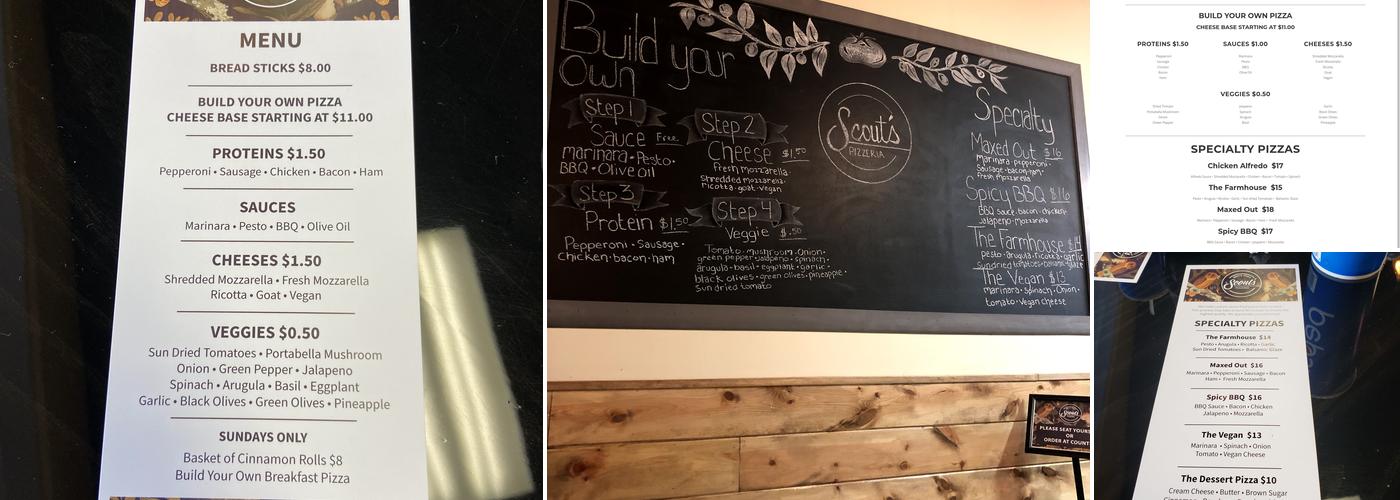 MENU
BREAD STICKS $8.00
BUILD YOUR OWN PIZZA
CHEESE BASE STARTING AT $11.00
PROTEINS $1.50
Pepperoni • Sausage • Chicken • Bacon • Ham
SAUCES
Marinara • Pesto • BBQ • Olive Oil
CHEESES $1.50
Shredded Mozzarella • Fresh Mozzarella
Ricotta • Goat • Vegan
VEGGIES $0.50
Sun Dried Tomatoes • Portabella Mushroom
Onion • Green Pepper • Jalapeno
Spinach • Arugula • Basil • Eggplant
Garlic • Black Olives • Green Olives • Pineapple
SUNDAYS ONLY
Basket of Cinnamon Rolls $8
Build Your Own Breakfast Pizza
Build your
Own
Step 1
Sauce Free
marinara • Pesto •
BBQ • Olive Oil
Step 2
Cheese $1.50
Fresh mozzarella •
Shredded mozzarella •
ricotta • goat • vegan
Step 3
Protein $1.50
Pepperoni • Sausage •
Chicken • bacon • ham
Step 4
Veggie $.50
Tomato • mushroom • Onion •
green pepper • jalapeno • spinach •
arugula • basil • eggplant • garlic •
black olives • green olives • pineapple •
Sun dried tomato
Scout's
PIZZERIA
Specialty
Maxed Out $16
marinara • pepperoni •
Sausage • bacon • ham •
fresh mozzarella
Spicy BBQ $16
BBQ Sauce • bacon • chicken •
jalapeno • mozzarella
The Farmhouse $14
pesto • arugula • ricotta • garlic
sundried tomatoes • balsamic glaze
The Vegan $13
marinara • Spinach • Onion •
tomato • vegan cheese
Scout's
PLEASE SEAT YOURS
OR
ORDER AT COUNT
BUILD YOUR OWN PIZZA
CHEESE BASE STARTING AT $11.00
PROTEINS $1.50
Pepperoni
Sausage
Chicken
Bacon
Ham
SAUCES $1.00
Marinara
Pesto
BBQ
Olive Oil
CHEESES $1.50
Shredded Mozzarella
Fresh Mozzarella
Ricotta
Goat
Vegan
VEGGIES $0.50
Dried Tomato
Portabella Mushroom
Onion
Green Pepper
Jalapeno
Spinach
Arugula
Basil
Garlic
Black Olives
Green Olives
Pineapple
SPECIALTY PIZZAS
Chicken Alfredo $17
Alfredo Sauce • Shredded Mozzarella • Chicken • Bacon • Tomato • Spinach
The Farmhouse $15
Pesto • Arugula • Ricotta • Garlic • Sun Dried Tomatoes • Balsamic Glaze
Maxed Out $18
Marinara • Pepperoni • Sausage • Bacon • Ham • Fresh Mozzarella
Spicy BBQ $17
BBQ Sauce • Bacon • Chicken • Jalapeno • Mozzarella
Scout's
SPECIALTY PIZZAS
The Farmhouse $14
Pesto • Arugula • Ricotta • Garlic
Sun Dried Tomatoes • Balsamic Glaze
Maxed Out $16
Marinara • Pepperoni • Sausage • Bacon
Ham • Fresh Mozzarella
Spicy BBQ $16
BBQ Sauce • Bacon • Chicken
Jalapeno • Mozzarella
The Vegan $13
Marinara • Spinach • Onion
Tomato • Vegan Cheese
The Dessert Pizza $10
Cream Cheese • Butter • Brown Sugar